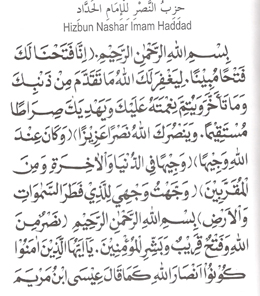 حِزْبُ النَّصْرِ لِلْإِمَامِ الْحَدَّاد
Hizbun Nashar Imam Haddad
بِسْمِ اللهِ الرَّحْمٰنِ الرَّحِيْمِ. (إِنَّا فَتَحْنَا لَكَ
فَتْحًا مُبِيْنًا. لِيَغْفِرَ لَكَ اللهُ مَا تَقَدَّمَ مِنْ ذَنْبِكَ
وَمَا تَأَخَّرَ وَيُتِمَّ نِعْمَتَهُ عَلَيْكَ وَيَهْدِيَكَ صِرَاطًا
مُسْتَقِيْمًا. وَيَنْصُرَكَ اللهُ نَصْرًا عَزِيْزًا) (وَكَانَ عِنْدَ
اللهِ وَجِيْهًا) (وَجِيْهًا فِي الدُّنْيَا وَالْاٰخِرَةِ وَمِنَ
الْمُقَرَّبِيْنَ) (وَجَّهْتُ وَجْهِيَ لِلَّذِيْ فَطَرَ السَّمٰوَاتِ
وَالْأَرْضَ) بِسْمِ اللهِ الرَّحْمٰنِ الرَّحِيْمِ (نَصْرٌ مِنَ
اللهِ وَفَتْحٌ قَرِيْبٌ وَبَشِّرِ الْمُؤْمِنِيْنَ. يَا أَيُّهَا الَّذِيْنَ اٰمَنُوْا
كُوْنُوْا أَنْصَارَ اللهِ كَمَا قَالَ عِيْسَى ابْنُ مَرْيَمَ